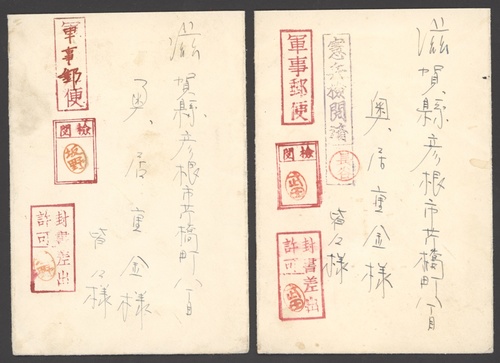 滋賀縣彦根市芹橋町八丁目
奥居重金様
皆々様
軍事郵便
檢閲
坂野
封書差出
許可
滋賀縣彦根市芹橋町八丁目
奥居重金様
皆々様
憲兵檢閲濟
軍事郵便
檢閲
封書差出
許可